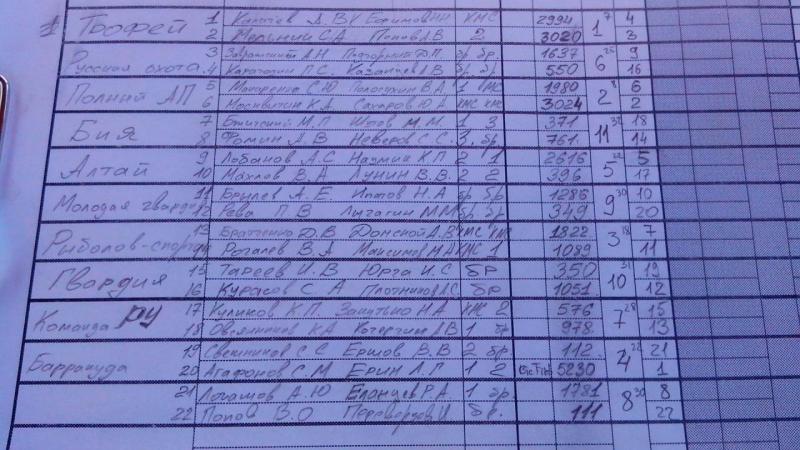 1 Трофей 1 Калачев Д.В. КМС 2994 1 7 4
2 Мельний С.А Попов А.В 2 3020 3
Русская охота 3 бр бр. 1637 6 25 9
4 П.С. Казанцев А.В бр. бр. 550 16
Полный АП 5 Макаренко С.Ю В.А. 1 КМС 1980 2 8 6
6 Москвитин К.А Сахаров Ю.А КМС КМС 3024 2
Бия 7 М.П М.М. 1 3 371 11 32 18
8 Фомин А В Неверов С С. 3. бр. 761 14
Алтай 9 Лобанов А.С Наумик К.П 2 1 2616 5 22 5
10 Махлов В.А Лунин В.В. 2 2 396 17
Молодая гвардия 11 Брылев А.Е Ипатов Н.А бр бр 1286 9 30 10
12 Рева П В Лигатин М М бр. бр. 349 20
Рыболов-спортсмен 13 Братченко Д.В Донской А.В КМС КМС 1822 3 18 7
14 Рогалев В.А Максимов М.А КМС 1 1089 11
Гвардия 15 Тареев И.В Юрга И.С бр 350 10 31 19
16 Курасов С А Плотников А.С бр 1051 12
Команда РУ 17 Куликов К.П. Н.А КМС 2 576 7 28 15
18 Овсянников К.А Котергин А В 1 978 13
Барракуда 19 Свешников С С Ершов В.В 2 бр. 112 4 22 21
20 Агафонов С.М Ерин А.Г 1 2 Big Fish 5230 1
21 Логашов А.Ю Еланцев Р.А. 1 бр. 1781 8 30 8
22 Попов В.О бр. 111 22